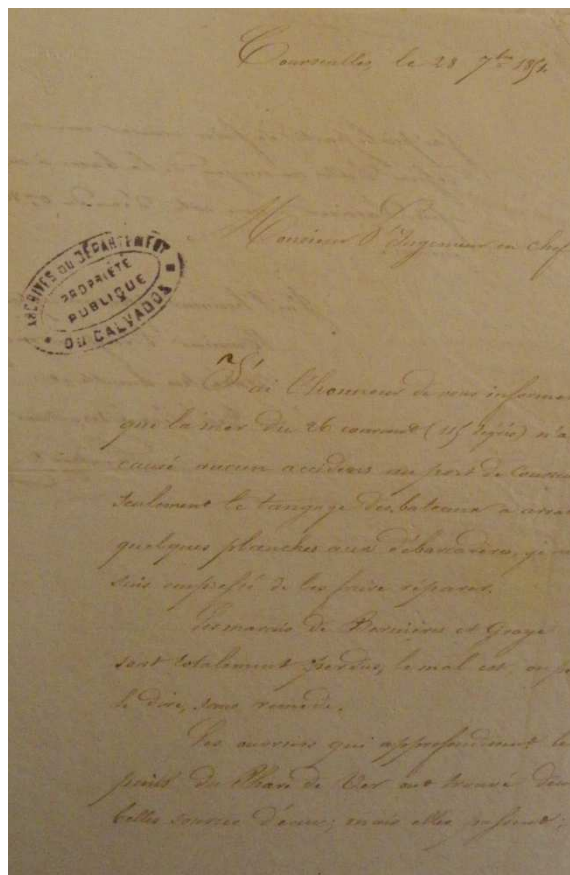 Courseulles, le 28 7bre 1854.
Monsieur l'Ingenieur en chef
ARCHIVES DU DÉPARTEMENT
PROPRIÉTÉ
PUBLIQUE
DU CALVADOS
J'ai l'honneur de vous informer
que la mer du 26 courant (115 degrés) n'a
causé aucun accidens au port de Courseu
seulement le tangage des bateaux a arra
quelques planches aux débarcadères, je m
suis empressé de les faire réparer.
Les marais de Bernières et Graye
sont totalement perdus, le mal est, on pe
le dire, sans remède.
Les ouvriers qui approfondissent le
puits du Phare de Ver ont trouvé deu
belles sources d'eau; mais elles